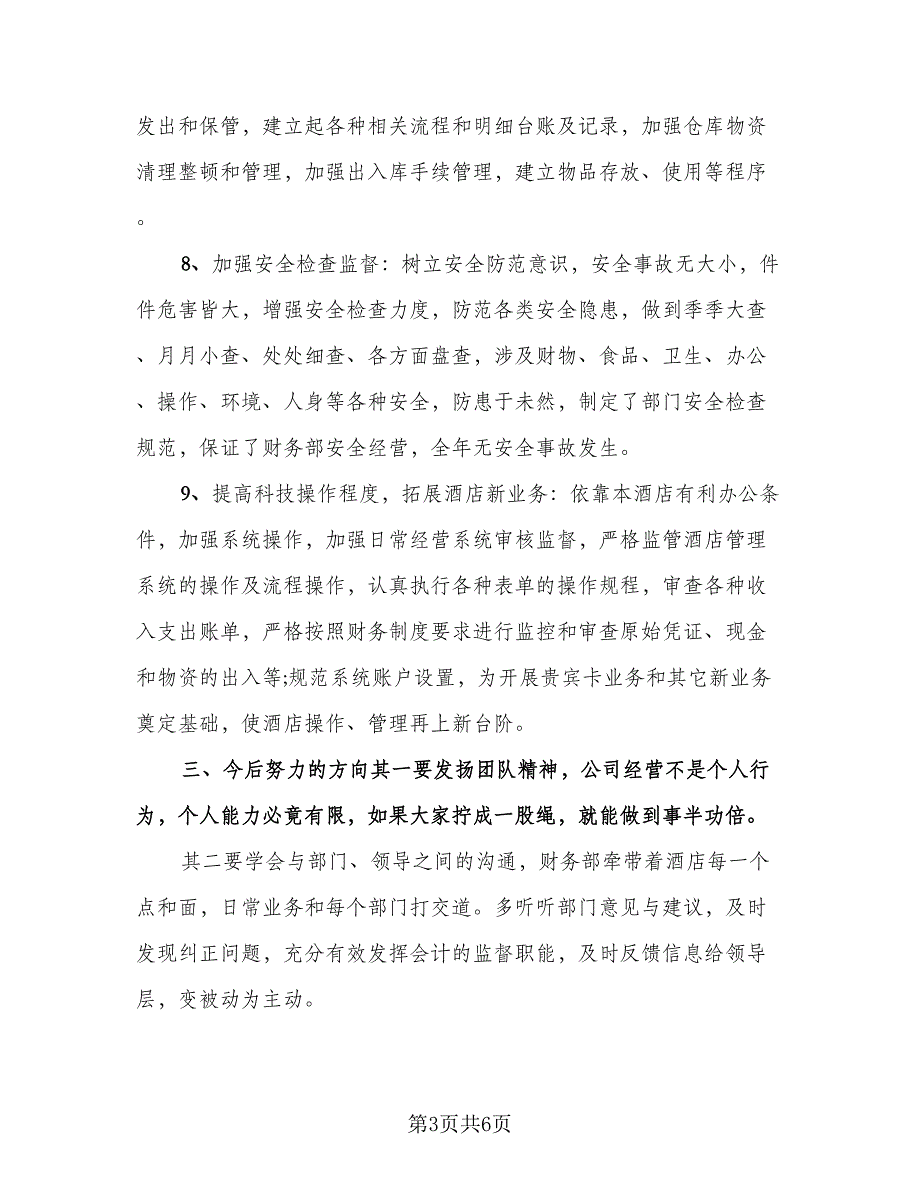 发出和保管，建立起各种相关流程和明细台账及记录，加强仓库物资
清理整顿和管理，加强出入库手续管理，建立物品存放、使用等程序
。
8、加强安全检查监督：树立安全防范意识，安全事故无大小，件
件危害皆大，增强安全检查力度，防范各类安全隐患，做到季季大查
、月月小查、处处细查、各方面盘查，涉及财物、食品、卫生、办公
、操作、环境、人身等各种安全，防患于未然，制定了部门安全检查
规范，保证了财务部安全经营，全年无安全事故发生。
9、提高科技操作程度，拓展酒店新业务：依靠本酒店有利办公条
件，加强系统操作，加强日常经营系统审核监督，严格监管酒店管理
系统的操作及流程操作，认真执行各种表单的操作规程，审查各种收
入支出账单，严格按照财务制度要求进行监控和审查原始凭证、现金
和物资的出入等;规范系统账户设置，为开展贵宾卡业务和其它新业务
奠定基础，使酒店操作、管理再上新台阶。
三、今后努力的方向其一要发扬团队精神，公司经营不是个人行
为，个人能力必竟有限，如果大家拧成一股绳，就能做到事半功倍。
其二要学会与部门、领导之间的沟通，财务部牵带着酒店每一个
点和面，日常业务和每个部门打交道。多听听部门意见与建议，及时
发现纠正问题，充分有效发挥会计的监督职能，及时反馈信息给领导
层，变被动为主动。
第3页共6页